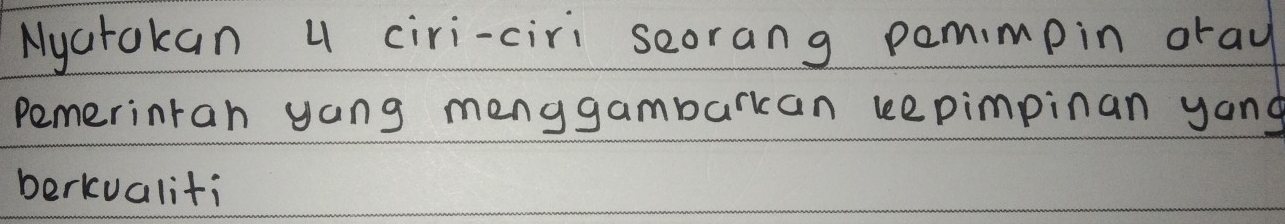 Nyatakan 4 ciri-ciri seorang pemimpin atau
Pemerintah yang menggambarkan kepimpinan yang
berkualiti